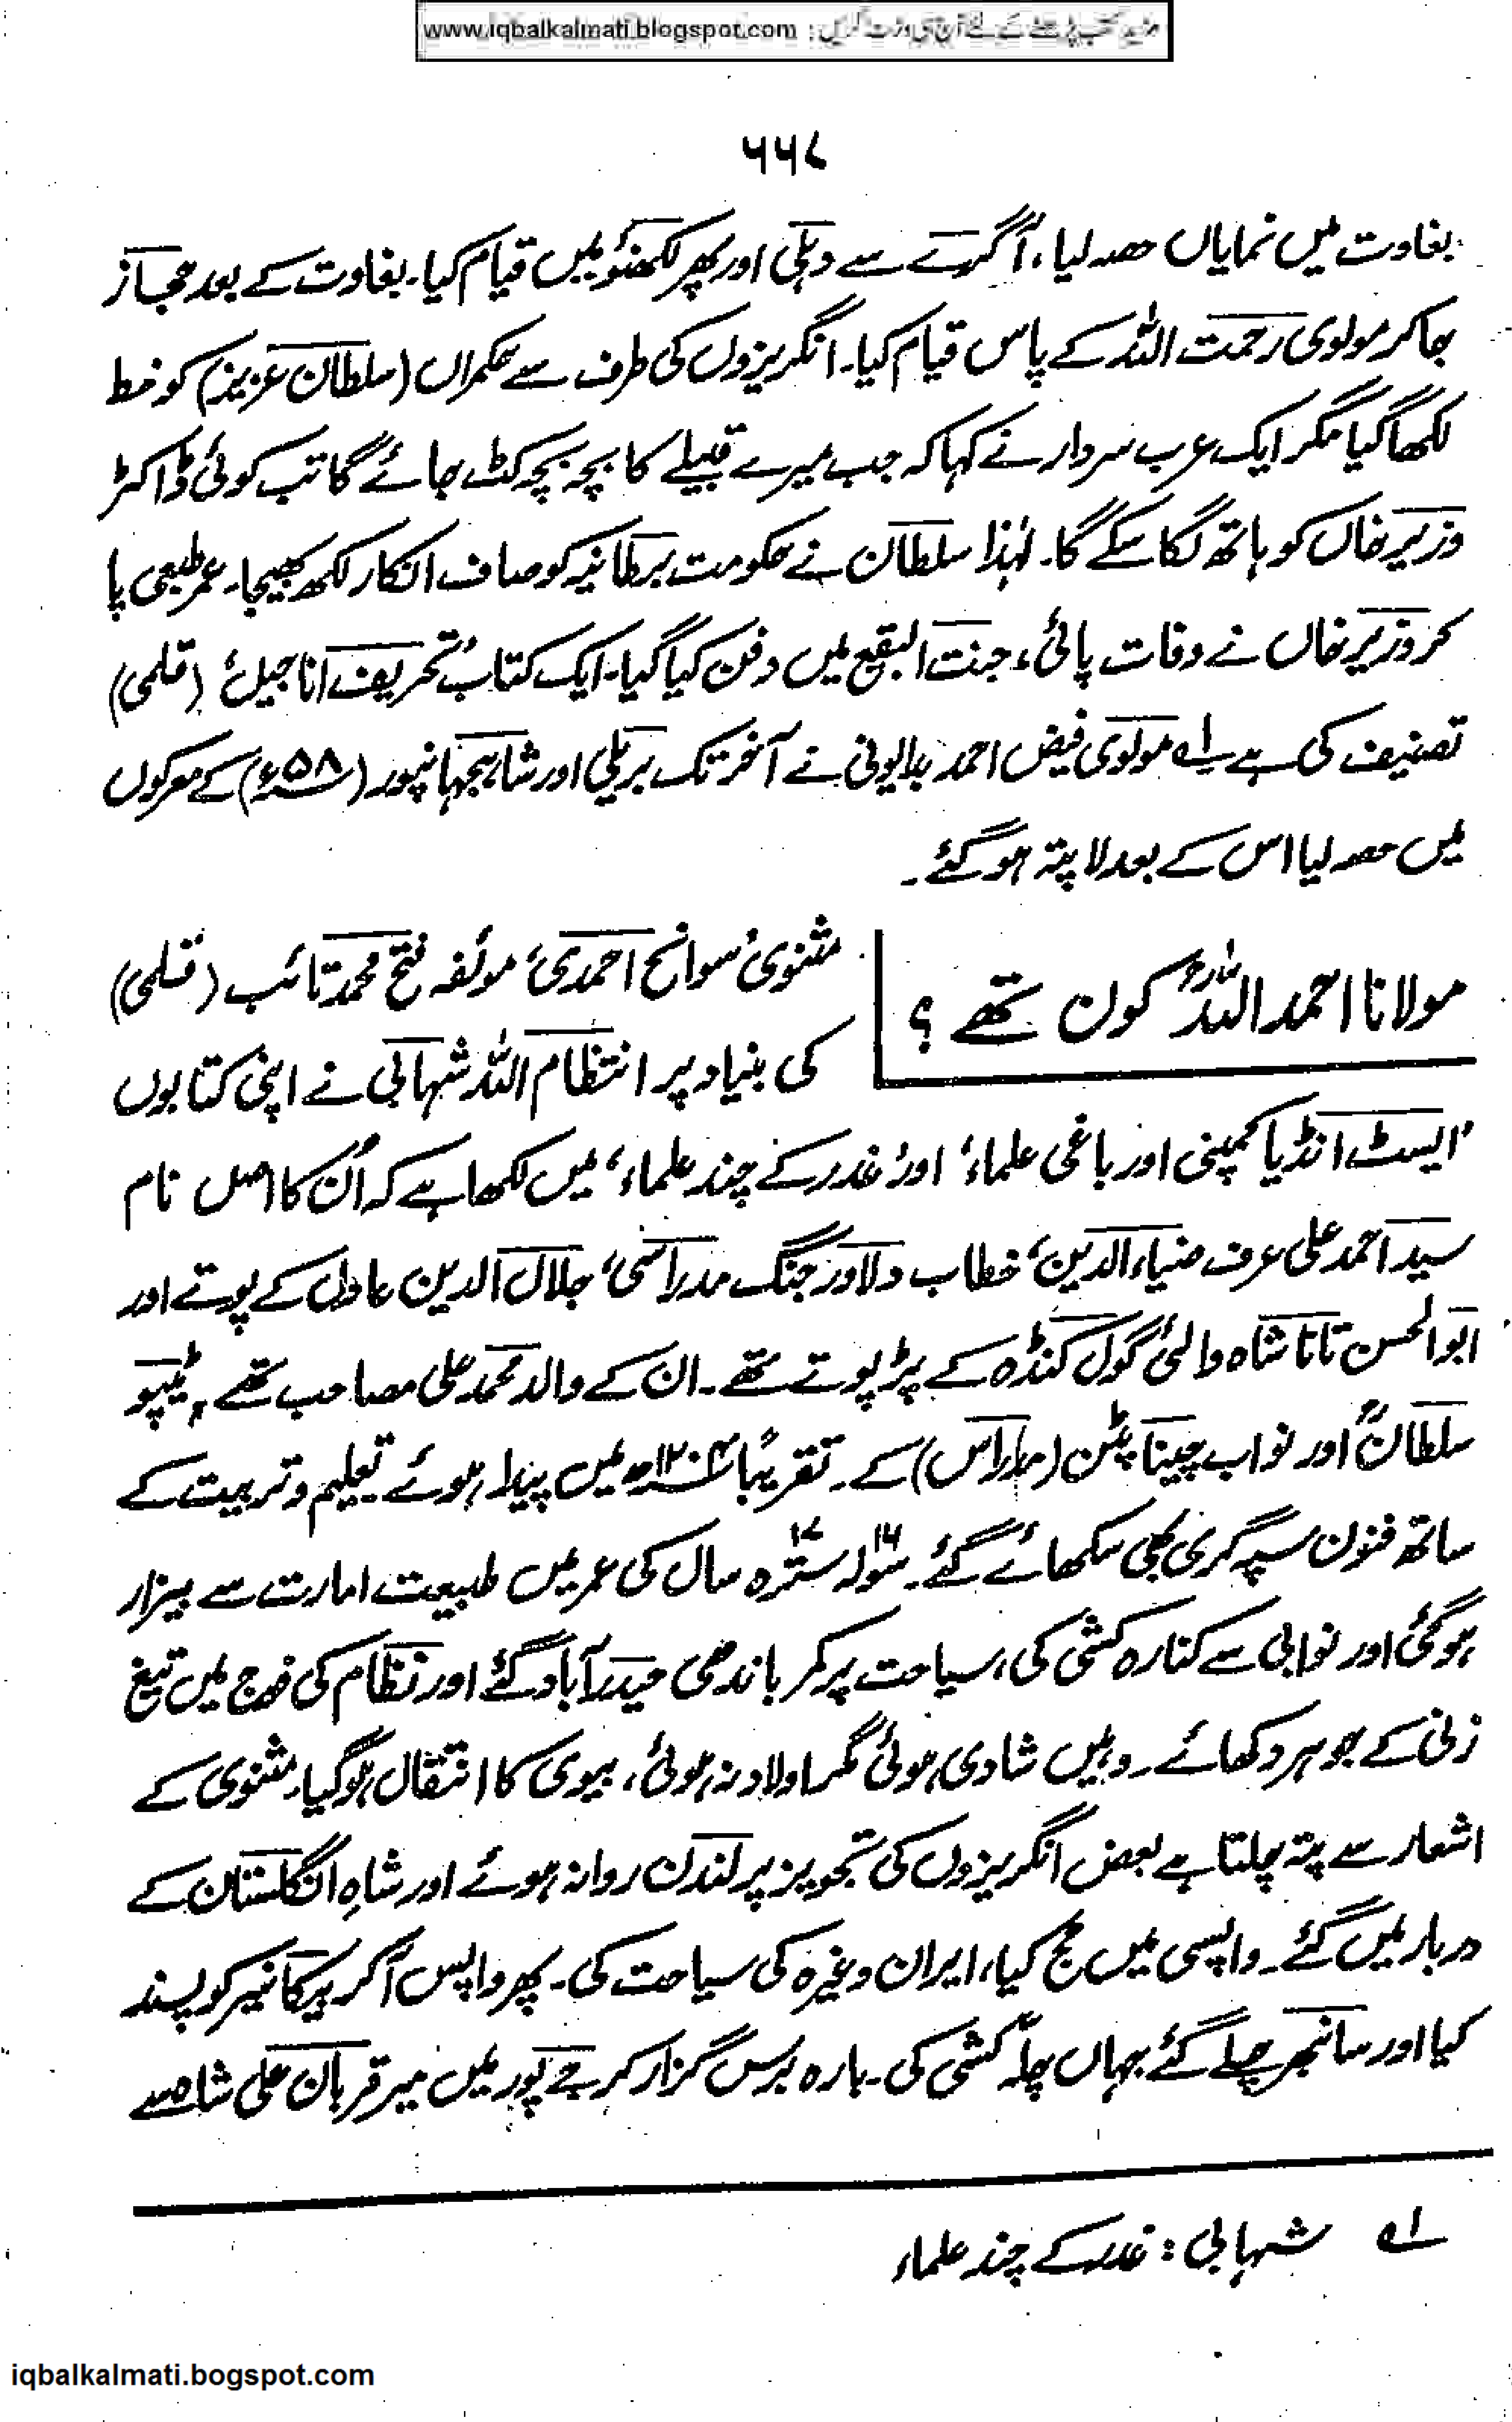 مزید کتب پڑھنے کے لئے آج ہی وزٹ کریں : www.iqbalkalmati.blogspot.com
۵۵۷
بغاوت میں نمایاں حصہ لیا، آگرے سے دہلی اور پھر لکھنؤ میں قیام کیا۔ بغاوت کے بعد حجاز
جا کر مولوی رحمت اللہ کے پاس قیام کیا۔ انگریزوں کی طرف سے حکمراں (سلطان عزیز) کو خط
لکھا گیا مگر ایک عرب سردار نے کہا کہ جب میرے قبیلے کا بچہ بچہ کٹ جائے گا تب کوئی ڈاکٹر
وزیر خاں کو ہاتھ لگا سکے گا۔ لہٰذا سلطان نے حکومت برطانیہ کو صاف انکار لکھ بھیجا۔ عمر طبعی پا
کر وزیر خاں نے وفات پائی، جنت البقیع میں دفن کیا گیا۔ ایک کتاب 'تحریف اناجیل' (قلمی)
تصنیف کی ہے۔ ۱؎ مولوی فیض احمد بدایونی نے آخر تک بریلی اور شاہجہانپور (۵۸ء) کے معرکوں
میں حصہ لیا اس کے بعد لاپتہ ہو گئے۔
مولانا احمد اللہؒ کون تھے ؟
مثنوی 'سوانح احمدی' مولفہ فتح محمد تائب (قلمی)
کی بنیاد پر انتظام اللہ شہابی نے اپنی کتابوں
'ایسٹ انڈیا کمپنی اور باغی علماء' اور 'غدر کے چند علماء' میں لکھا ہے کہ اُن کا اصل نام
سید احمد علی عرف ضیاء الدین، خطاب دلاور جنگ مدراسی، جلال الدین عادل کے پوتے اور
ابوالحسن تانا شاہ والئ گول کنڈہ کے پڑپوتے تھے۔ ان کے والد محمد علی مصاحب تھے، ٹیپو
سلطانؒ اور نواب چینا پٹن (مدراس) کے۔ تقریباً ۱۲۰۴ھ میں پیدا ہوئے تعلیم و تربیت کے
ساتھ فنون سپہ گری بھی سکھائے گئے۔ سولہ ۱۶ سترہ ۱۷ سال کی عمر میں طبیعت امارت سے بیزار
ہو گئی اور نوابی سے کنارہ کشی کی، سیاحت پر کمر باندھی حیدرآباد گئے اور نظام کی فوج میں تیغ
زنی کے جوہر دکھائے۔ وہیں شادی ہوئی مگر اولاد نہ ہوئی، بیوی کا انتقال ہو گیا۔ مثنوی کے
اشعار سے پتہ چلتا ہے بعض انگریزوں کی تجویز پر لندن روانہ ہوئے اور شاہِ انگلستان کے
دربار میں گئے۔ واپسی میں حج کیا، ایران وغیرہ کی سیاحت کی۔ پھر واپس آ کر بیکانیر کو پسند
کیا اور سانبھر چلے گئے جہاں چلّہ کشی کی۔ بارہ برس گزار کر جے پور میں میر قربان علی شاہ سے
۱؎ شہابی : غدر کے چند علماء
iqbalkalmati.bogspot.com